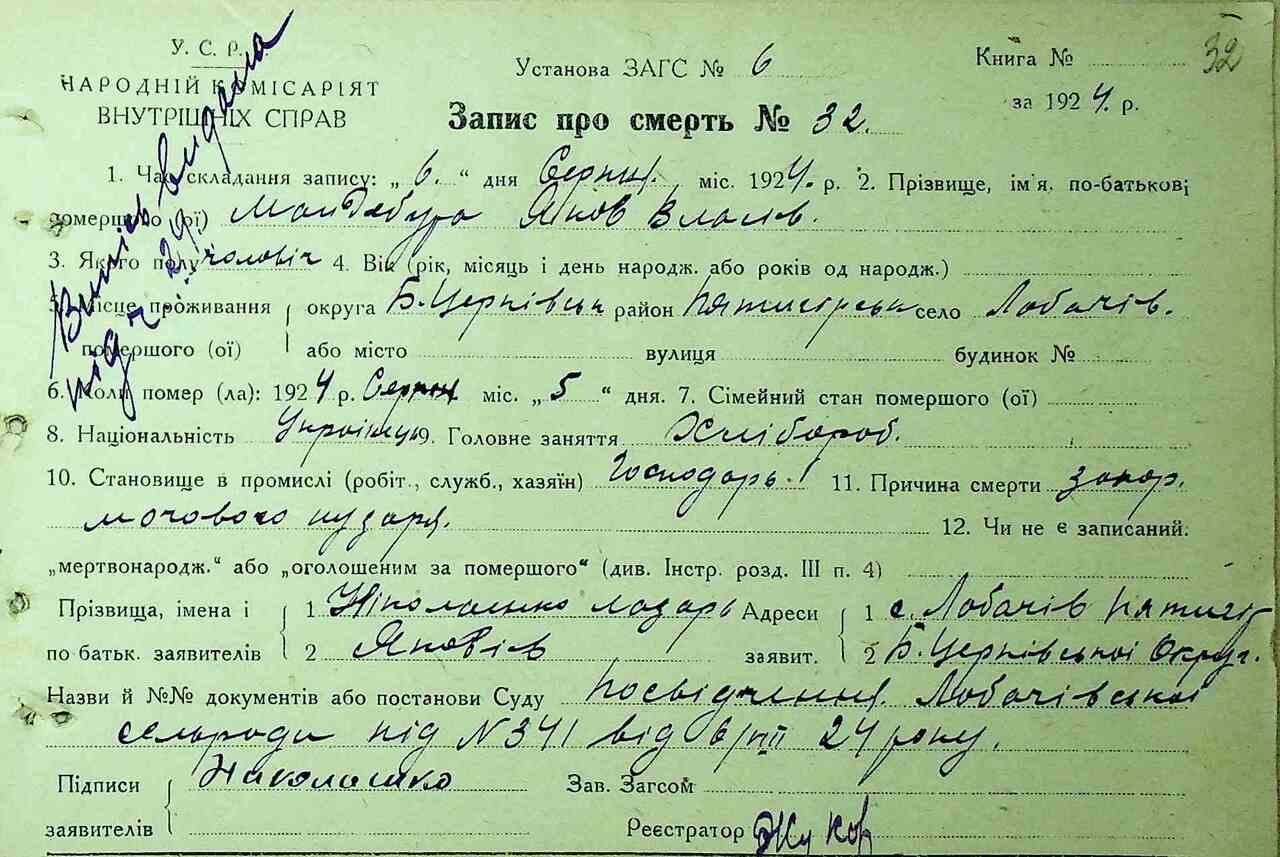 У. С. Р.
НАРОДНІЙ КОМІСАРІЯТ
ВНУТРІШНІХ СПРАВ
Установа ЗАГС № 6
Книга №
32
за 1924. р.
Запис про смерть № 32.
1. Час складання запису: „6.“ дня Серпн. міс. 1924. р. 2. Прізвище, ім'я. по-батькові
помершого (ої) Мандебура Яков Власів.
3. Якого полу чоловіч 4. Вік (рік, місяць і день народж. або років од народж.)
5. Місце проживання округа Б.Церківськ район Пятигірськ село Лобачів.
помершого (ої) або місто вулиця будинок №
6. Коли помер (ла): 1924 р. Серпн міс. „5“ дня. 7. Сімейний стан помершого (ої)
8. Національність Українець 9. Головне заняття Хлібороб.
10. Становище в промислі (робіт., служб., хазяїн) Господарь. 11. Причина смерти
мочового пузаря. 12. Чи не є записаний.
„мертвонародж.“ або „оголошеним за помершого“ (див. Інстр. розд. III п. 4)
Прізвища, імена і 1 Ніколашко Лазарь Адреси 1 с. Лобачів Пятигір
по батьк. заявителів 2 Яковів заявит. 2 Б.Церківської Округ.
Назви й №№ документів або постанови Суду Посвідчення Лобачівської
сельради під N341 від 6/VIII 24 року.
Підписи Николашко Зав. Загсом
заявителів Реєстратор Жуков
Випись видана
під ч. 29